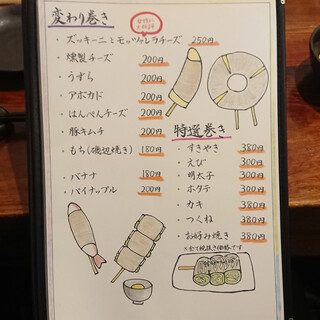 変わり巻き
・ズッキーニとモッツァレラチーズ 250円
・燻製チーズ 200円
・うずら 200円
・アボカド 200円
・はんぺんチーズ 200円
・豚キムチ 200円
・もち(磯辺焼き) 180円
・バナナ 180円
・パイナップル 200円
特選巻き
・すきやき 380円
・えび 300円
・明太子 300円
・ホタテ 300円
・カキ 380円
・つくね 380円
・お好み焼き 380円
※全て税抜き価格です